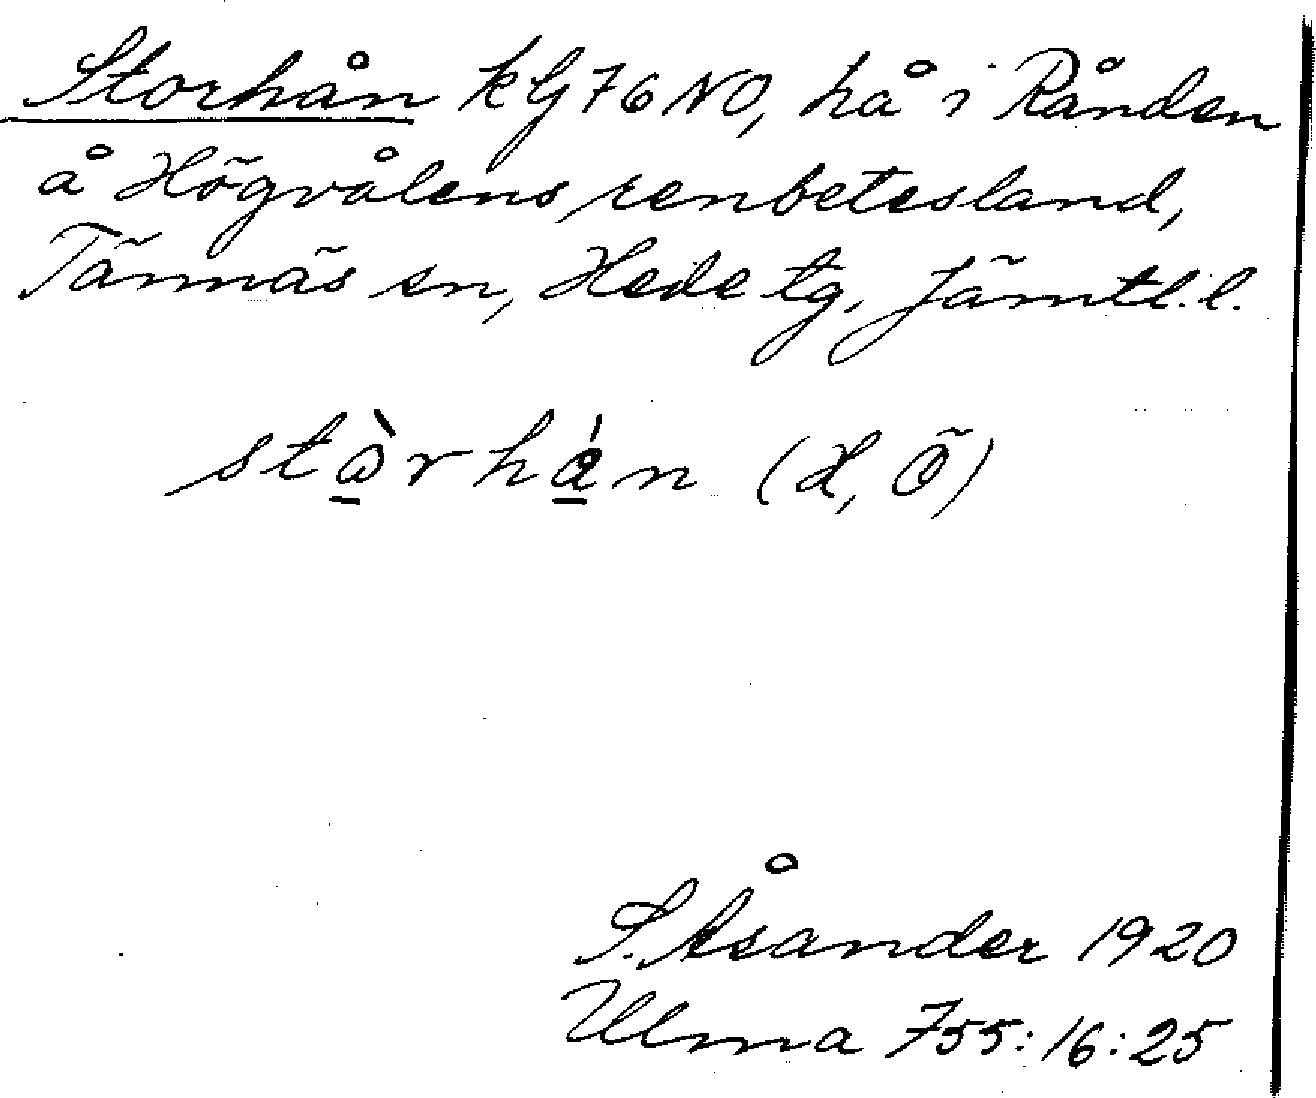 Storhån kG76NO, hå i Rånden
å Högvålens renbetesland,
Tännäs sn, Hede tg, Jämtl.l.
stòrhǻn (H, Ö)
S. Åsander 1920
Ulma 755:16:25